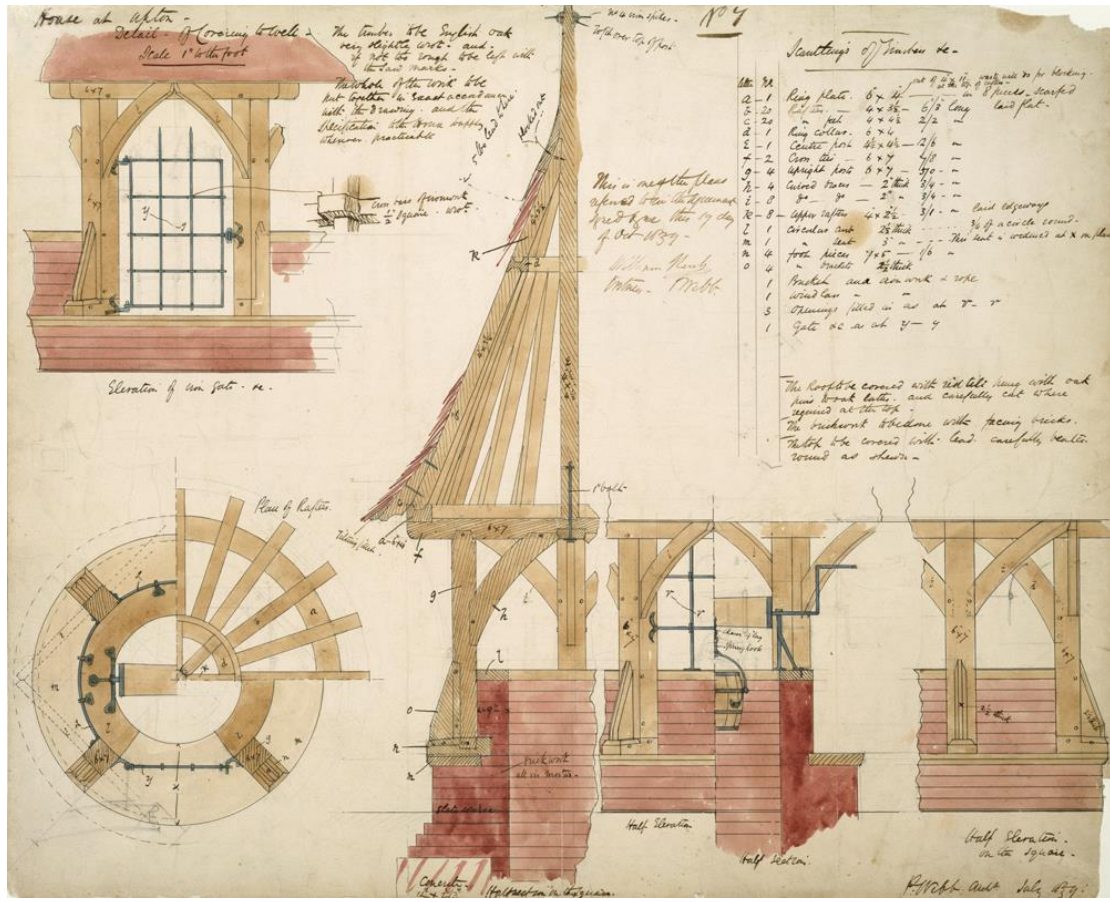 House at Upton -
Detail - of Covering to Well -
Scale 1" to the foot
The timber to be English oak
very slightly wrot - and
if not too rough to be left with
the saw marks -
The whole of the work to be
put together in exact accordance
with the Drawing. and the
Specification to the House
wherever practicable
No 7
No 4 iron spikes -
top of post
6 x 7
6 x 7
y
cross bars of ironwork
1/2" square - wrot -
Elevation of iron gate - &c -
This is one of the plans
referred to in the agreement
signed by me this 19 day
of Oct 1859 -
William
Webb
Scantlings of Timbers &c -
a - 1 Ring plate. 6 x 4 in 8 pieces - scarfed
b - 20 4 x 3½ - 6/3 long laid flat -
c - 20 " feet 4 x 4½ 2/2 "
d - 1 Ring collar. 6 x 4
e - 1 Centre post 4½ x 4½ - 12/6 "
f - 2 Cross ties - 6 x 7
g - 4 upright posts 6 x 7 -
h - 4 Curved braces - 2" thick 3/4 - "
i - 8 do - do - 2" " 3/4 - "
k - 8 - Upper rafters 4 x 2½ 3/1 - " laid edgeways
l - 1 Circular 2½ thick 3/4 of a circle round -
m - 1 " seat 3" " - This seat is weathered at x on plan
n - 4 foot pieces 7 x 5 - 1/6 "
o - 4 " brackets 2½ thick
1 Bucket and ironwork & rope
1 windlass
3 Openings filled in as at r - r
1 Gate &c as at y - y
The Roof to be covered with red tile hung with oak
pins to oak laths. and carefully cut where
required at the top -
The brickwork to be done with facing bricks.
The top to be covered with lead. carefully beaten
round as shewn -
Plan of Rafters.
1" bolt
6 x 7
g
h
l
o
n
brickwork
all in mortar -
Concrete -
Half section on the square.
Half Elevation
Half Section.
2½ thick
Half Elevation -
on the square -
P. Webb Archt July 1859.